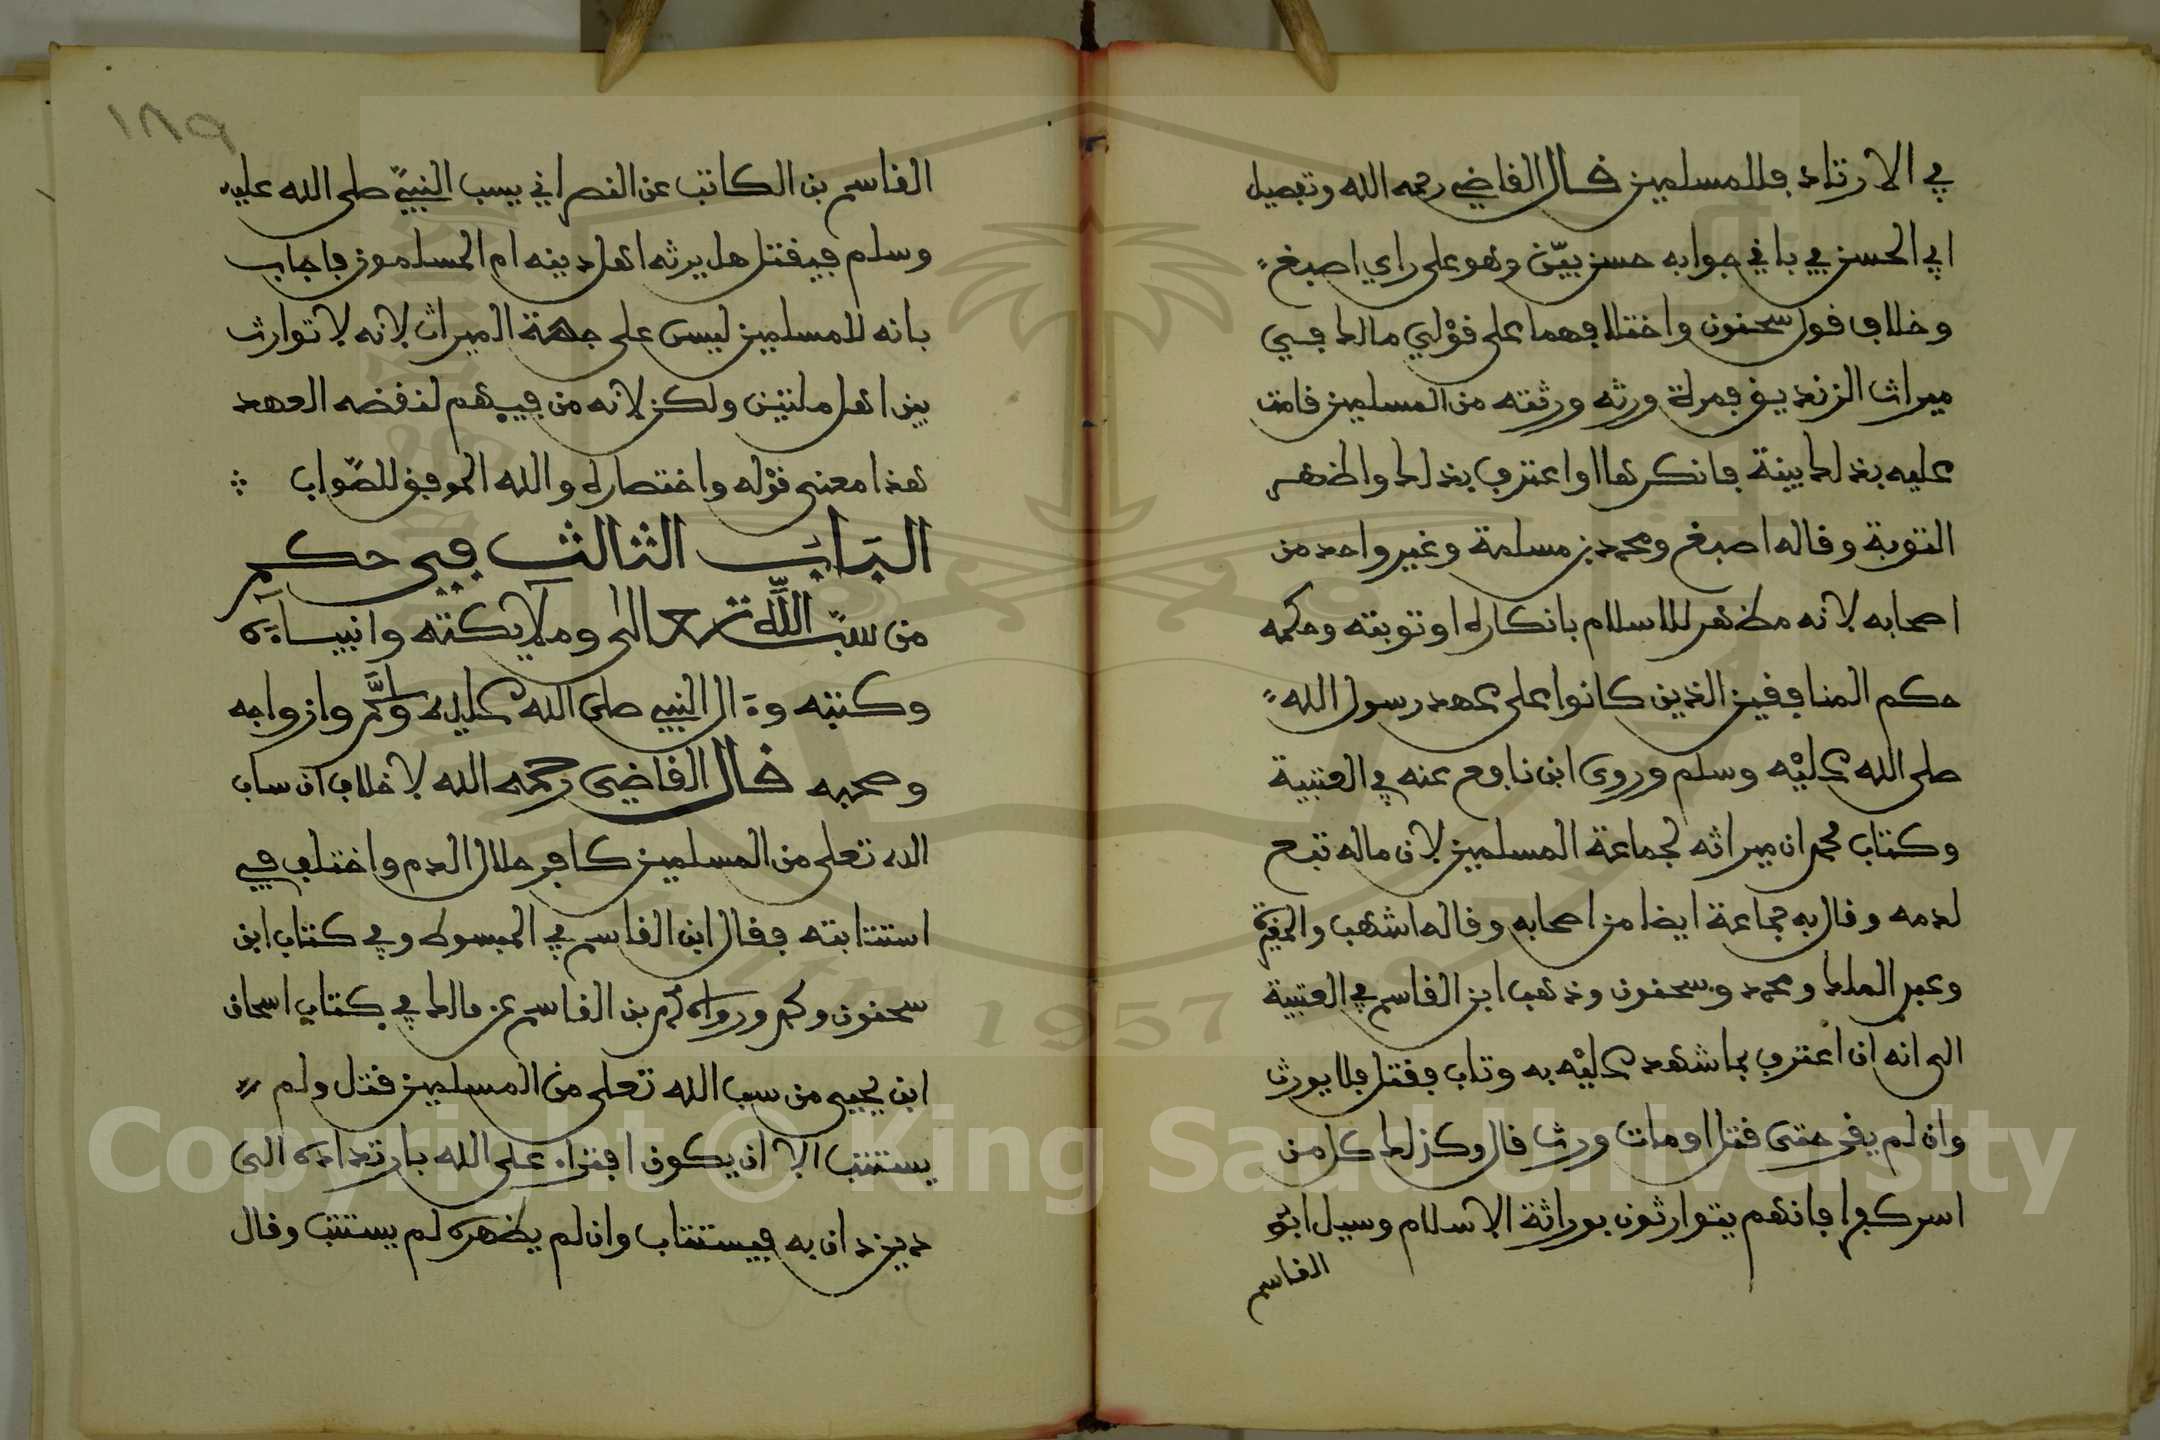 في الارتداد فللمسلمين قال القاضي رحمه الله وتفصيل
ابي الحسن في باقي جوابه حسن بيّن وهو على راي اصبغ
وخلاف قول سحنون واختلافهما على قولي مالك في
ميراث الزنديق فمرة ورثه ورثته من المسلمين قامت
عليه بذلك بينة فانكرها او اعترف بذلك واظهر
التوبة وقاله اصبغ ومحمد بن مسلمة وغير واحد من
اصحابه لانه مظهر للاسلام بانكاره او توبته وحكمه
حكم المنافقين الذين كانوا على عهد رسول الله
صلى الله عليه وسلم وروى ابن نافع عنه في العتبية
وكتاب محمد ان ميراثه لجماعة المسلمين لان ماله تبع
لدمه وقال به جماعة ايضا من اصحابه وقاله اشهب والمغيرة
وعبد الملك ومحمد وسحنون وذهب ابن القاسم في العتبية
الى انه ان اعترف بما شهد عليه به وتاب فقتل فلا يورث
وان لم يقر حتى قتل او مات ورث قال وكذلك كل من
اسر كفرا فانهم يتوارثون بوراثة الاسلام وسيل ابو
القاسم
١٨٩
القاسم بن الكاتب عن النصراني يسب النبيّ صلى الله عليه
وسلم فيقتل هل يرثه اهل دينه ام المسلمون فاجاب
بانه للمسلمين ليس على جهة الميراث لانه لا توارث
بين اهل ملتين ولكن لانه من فيهم لنقضه العهد
هذا معنى قوله واختصاره والله الموفق للصّواب
الباب الثالث في حكم
من سبّ اللّه تعالى وملايكته وانبياءه
وكتبه وءال النبي صلى الله عليه وسلّم وازواجه
وصحبه قال القاضي رحمه الله لا خلاف ان ساب
الله تعلى من المسلمين كافر حلال الدم واختلف في
استتابته فقال ابن القاسم في المبسوط وفي كتاب ابن
سحنون ومحمد ورواه ابن القاسم عن مالك في كتاب اسحاق
ابن يحيى من سب الله تعلى من المسلمين قتل ولم
يستتب الا ان يكون افتراء على الله بارتداده الى
دين دان به فيستتاب وان لم يظهره لم يستتب وقال
1957
Copyright © King Saud University